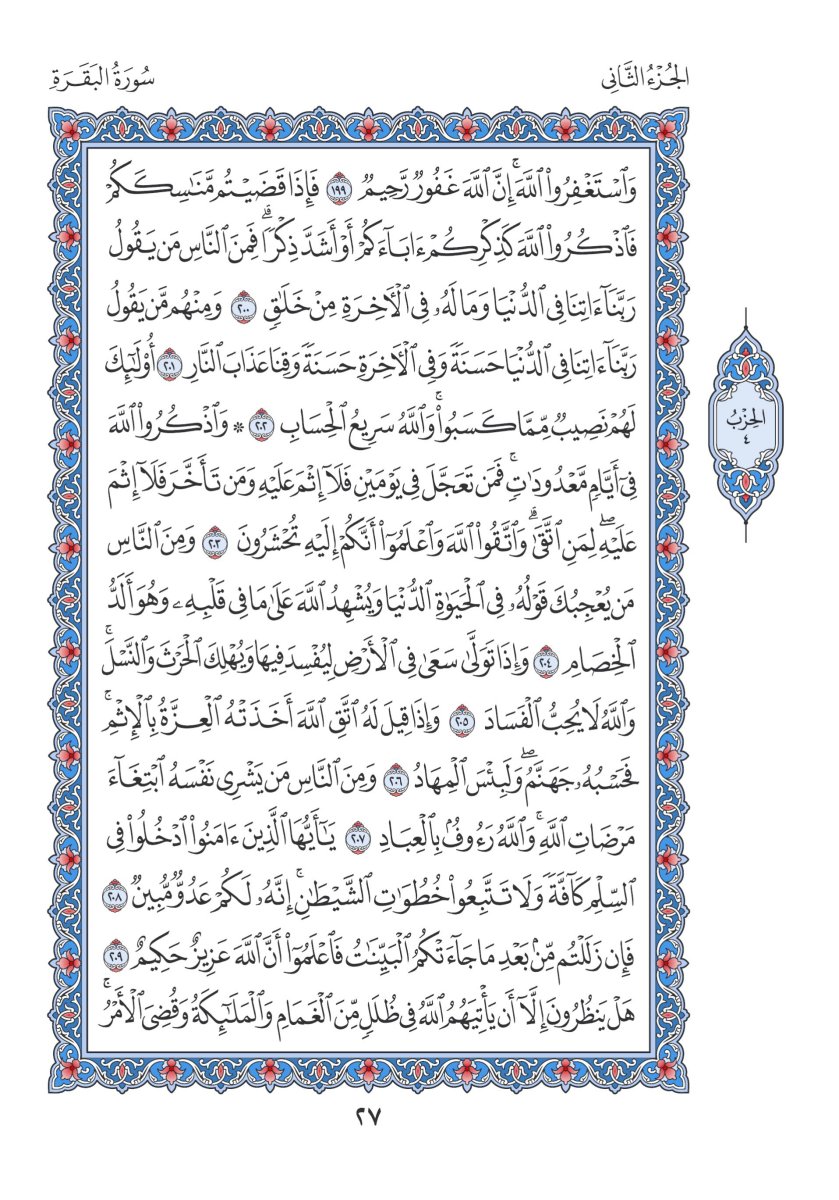 الجُزْءُ الثَّانِي
سُورَةُ البَقَرَةِ
وَٱسْتَغْفِرُوا۟ ٱللَّهَۚ إِنَّ ٱللَّهَ غَفُورٌ رَّحِيمٌ ١٩٩ فَإِذَا قَضَيْتُم مَّنَـٰسِكَكُمْ
فَٱذْكُرُوا۟ ٱللَّهَ كَذِكْرِكُمْ ءَابَآءَكُمْ أَوْ أَشَدَّ ذِكْرًاۗ فَمِنَ ٱلنَّاسِ مَن يَقُولُ
رَبَّنَآ ءَاتِنَا فِى ٱلدُّنْيَا وَمَا لَهُۥ فِى ٱلْـَٔاخِرَةِ مِنْ خَلَـٰقٍ ٢٠٠ وَمِنْهُم مَّن يَقُولُ
رَبَّنَآ ءَاتِنَا فِى ٱلدُّنْيَا حَسَنَةً وَفِى ٱلْـَٔاخِرَةِ حَسَنَةً وَقِنَا عَذَابَ ٱلنَّارِ ٢٠١ أُو۟لَـٰٓئِكَ
لَهُمْ نَصِيبٌ مِّمَّا كَسَبُوا۟ۚ وَٱللَّهُ سَرِيعُ ٱلْحِسَابِ ٢٠٢ * وَٱذْكُرُوا۟ ٱللَّهَ
فِىٓ أَيَّامٍ مَّعْدُودَٰتٍۚ فَمَن تَعَجَّلَ فِى يَوْمَيْنِ فَلَآ إِثْمَ عَلَيْهِ وَمَن تَأَخَّرَ فَلَآ إِثْمَ
عَلَيْهِۖ لِمَنِ ٱتَّقَىٰۗ وَٱتَّقُوا۟ ٱللَّهَ وَٱعْلَمُوٓا۟ أَنَّكُمْ إِلَيْهِ تُحْشَرُونَ ٢٠٣ وَمِنَ ٱلنَّاسِ
مَن يُعْجِبُكَ قَوْلُهُۥ فِى ٱلْحَيَوٰةِ ٱلدُّنْيَا وَيُشْهِدُ ٱللَّهَ عَلَىٰ مَا فِى قَلْبِهِۦ وَهُوَ أَلَدُّ
ٱلْخِصَامِ ٢٠٤ وَإِذَا تَوَلَّىٰ سَعَىٰ فِى ٱلْأَرْضِ لِيُفْسِدَ فِيهَا وَيُهْلِكَ ٱلْحَرْثَ وَٱلنَّسْلَۚ
وَٱللَّهُ لَا يُحِبُّ ٱلْفَسَادَ ٢٠٥ وَإِذَا قِيلَ لَهُ ٱتَّقِ ٱللَّهَ أَخَذَتْهُ ٱلْعِزَّةُ بِٱلْإِثْمِۚ
فَحَسْبُهُۥ جَهَنَّمُۖ وَلَبِئْسَ ٱلْمِهَادُ ٢٠٦ وَمِنَ ٱلنَّاسِ مَن يَشْرِى نَفْسَهُ ٱبْتِغَآءَ
مَرْضَاتِ ٱللَّهِۚ وَٱللَّهُ رَءُوفٌۢ بِٱلْعِبَادِ ٢٠٧ يَـٰٓأَيُّهَا ٱلَّذِينَ ءَامَنُوا۟ ٱدْخُلُوا۟ فِى
ٱلسِّلْمِ كَآفَّةً وَلَا تَتَّبِعُوا۟ خُطُوَٰتِ ٱلشَّيْطَـٰنِۚ إِنَّهُۥ لَكُمْ عَدُوٌّ مُّبِينٌ ٢٠٨
فَإِن زَلَلْتُم مِّنۢ بَعْدِ مَا جَآءَتْكُمُ ٱلْبَيِّنَـٰتُ فَٱعْلَمُوٓا۟ أَنَّ ٱللَّهَ عَزِيزٌ حَكِيمٌ ٢٠٩
هَلْ يَنظُرُونَ إِلَّآ أَن يَأْتِيَهُمُ ٱللَّهُ فِى ظُلَلٍ مِّنَ ٱلْغَمَامِ وَٱلْمَلَـٰٓئِكَةُ وَقُضِىَ ٱلْأَمْرُۚ
الحِزْبُ
٤
٢٧